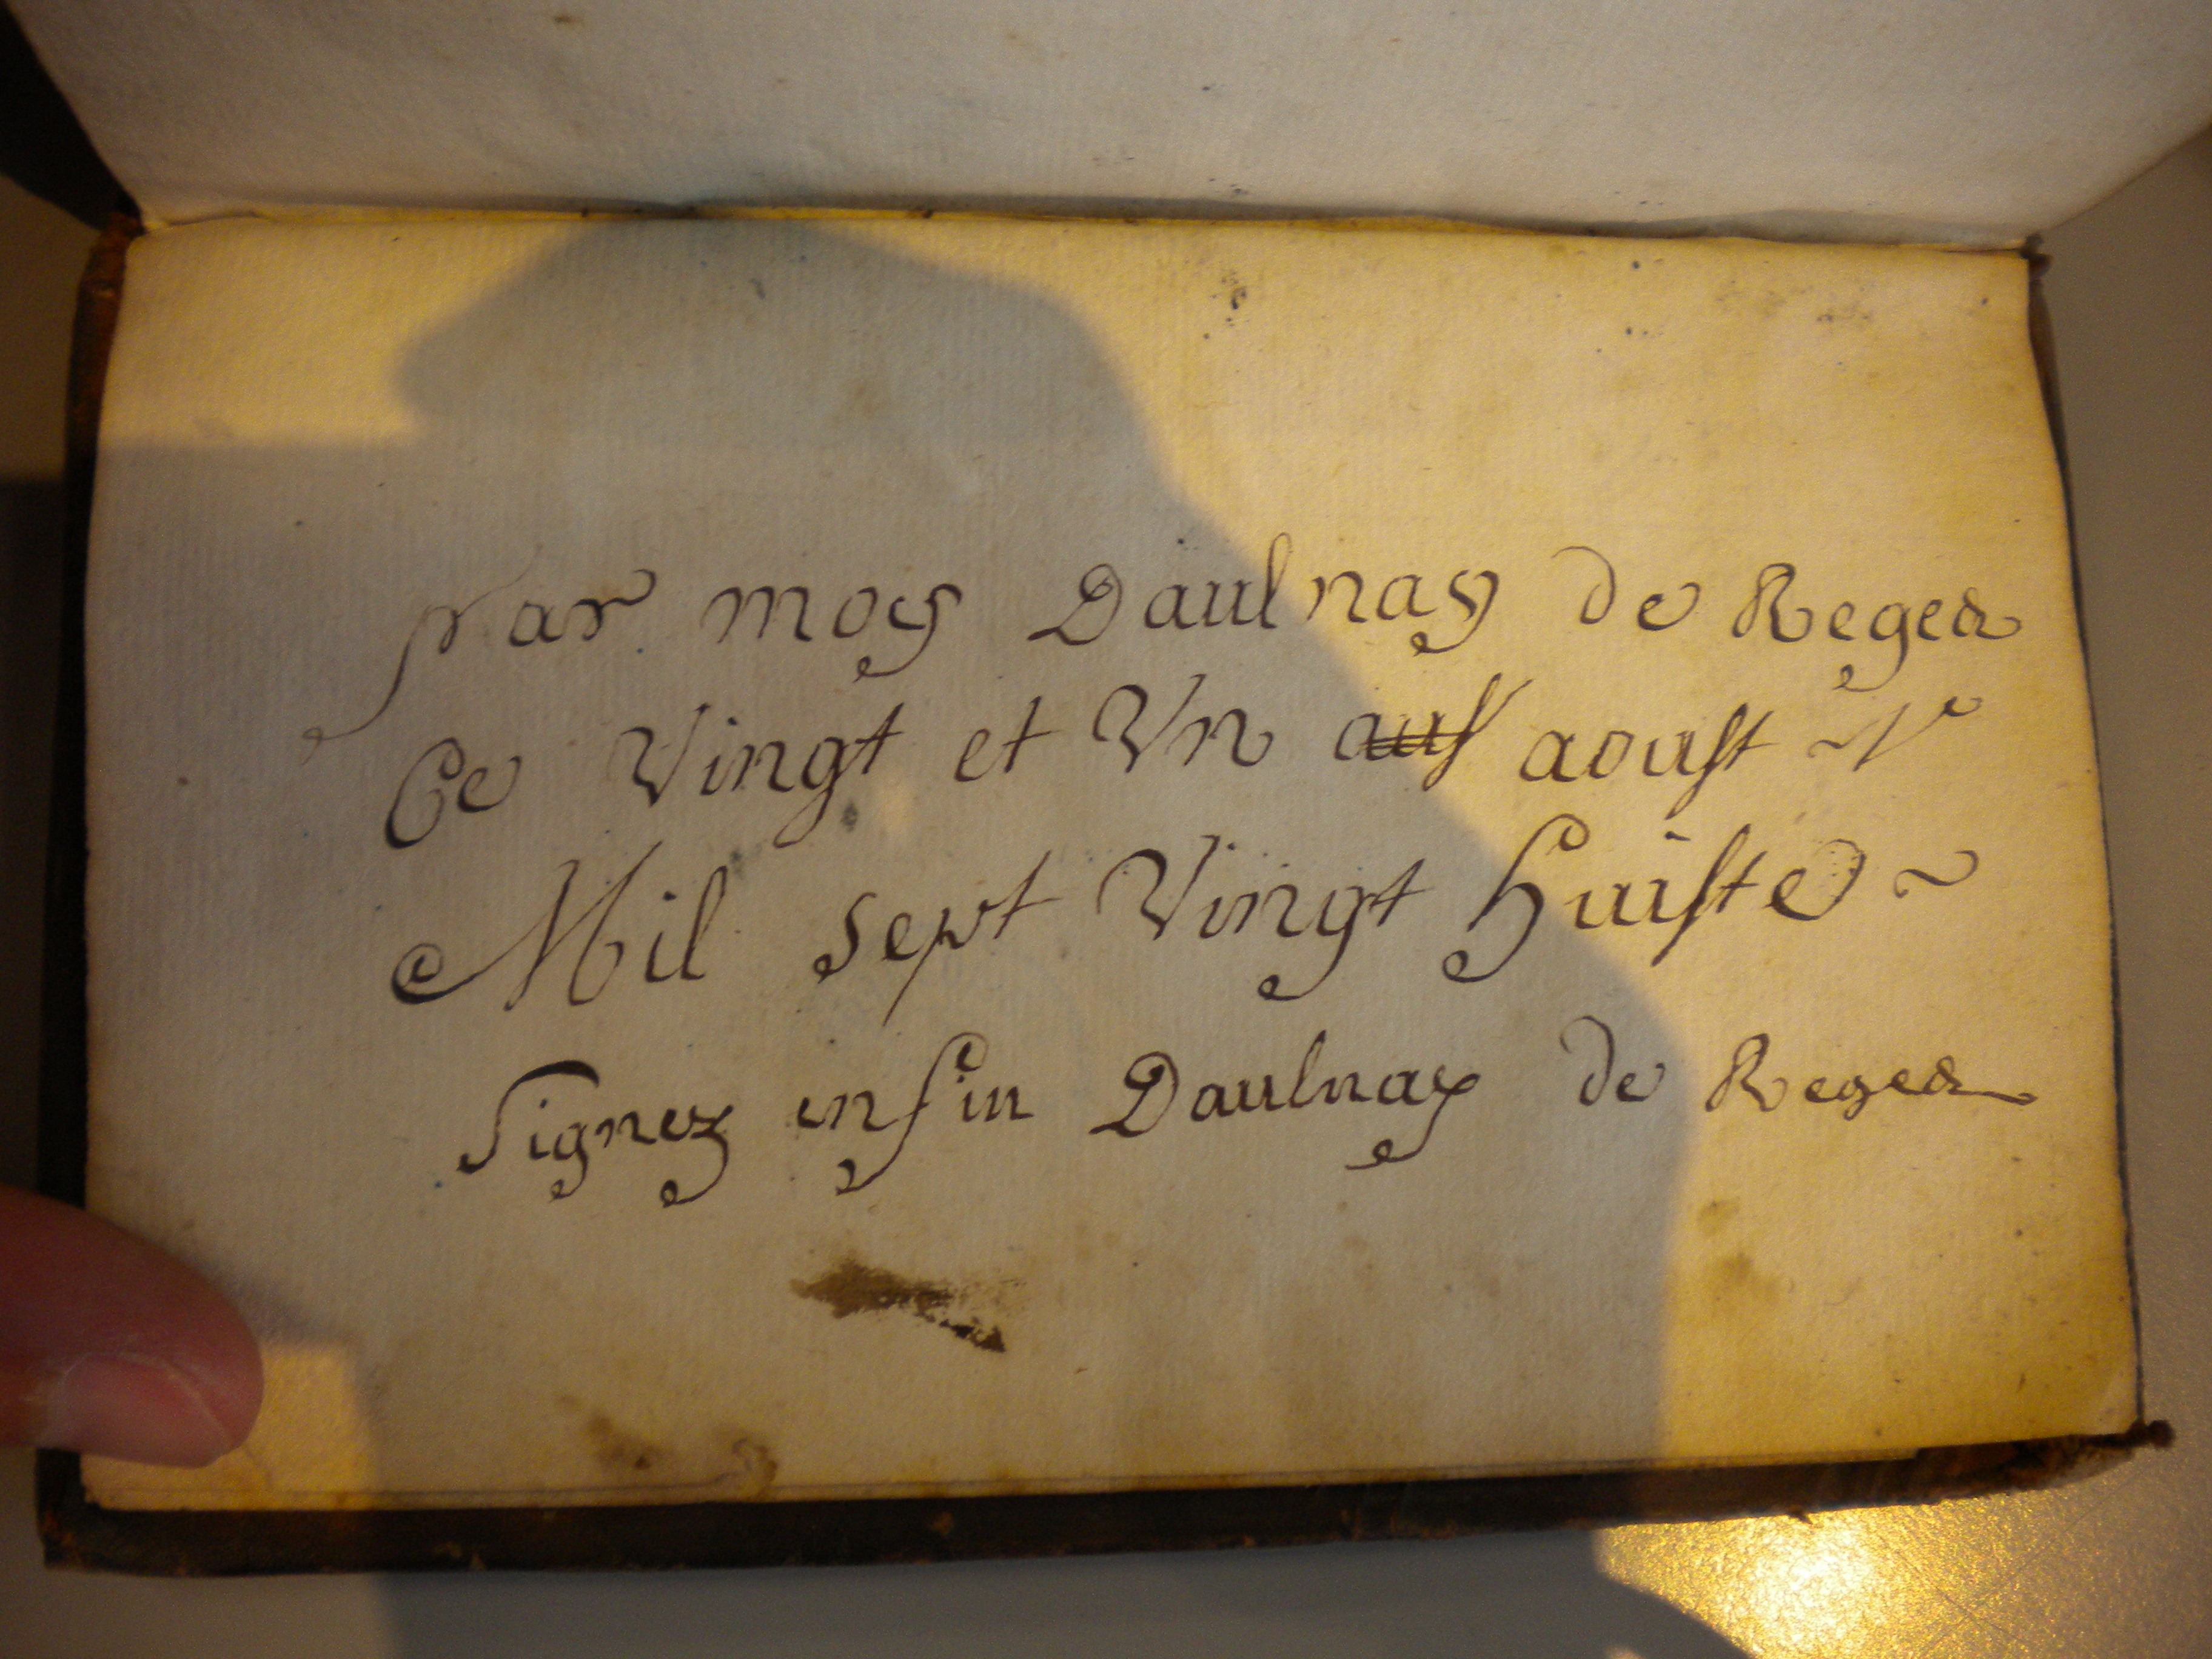 par moy Daulnay de Reged
Ce Vingt et Vn auf aoust
Mil sept Vingt huiste ~
Signez insin Daulnay de Reged